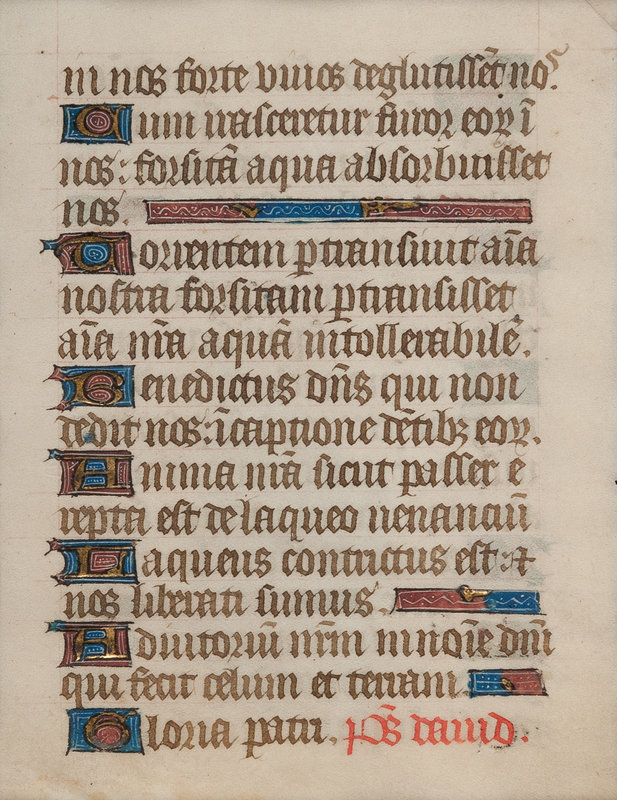 ni nos forte viuos deglutissēt nos.
Cum irasceretur furor eoꝝ ī
nos: forsitā aqua absorbuisset
nos.
Torrentem ꝑtransiuit aīa
nostra forsitam ꝑtransisset
aīa nr̄a aquā intollerabilē.
Benedictus dn̄s qui non
dedit nos: ī captione dētibꝫ eoꝝ.
Anima nr̄a sicut passer e
repta est de laqueo uenanciū
Laqueus contrictus est: et
nos liberati sumus.
Adiutoriū nr̄m in noīe dn̄i
qui fecit celum et terram.
Gloria patri. ps̄ dauid.